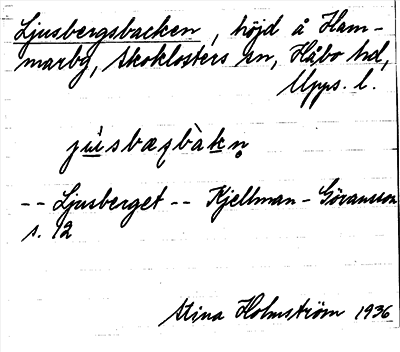 Ljusbergsbacken, höjd å Ham-
marby, Skoklosters sn, Håbo hd,
Upps. l.
jùsbæꞅbàkn̥
-- Ljusberget -- Kjellman-Göransson
s. 12
Stina Holmström 1936